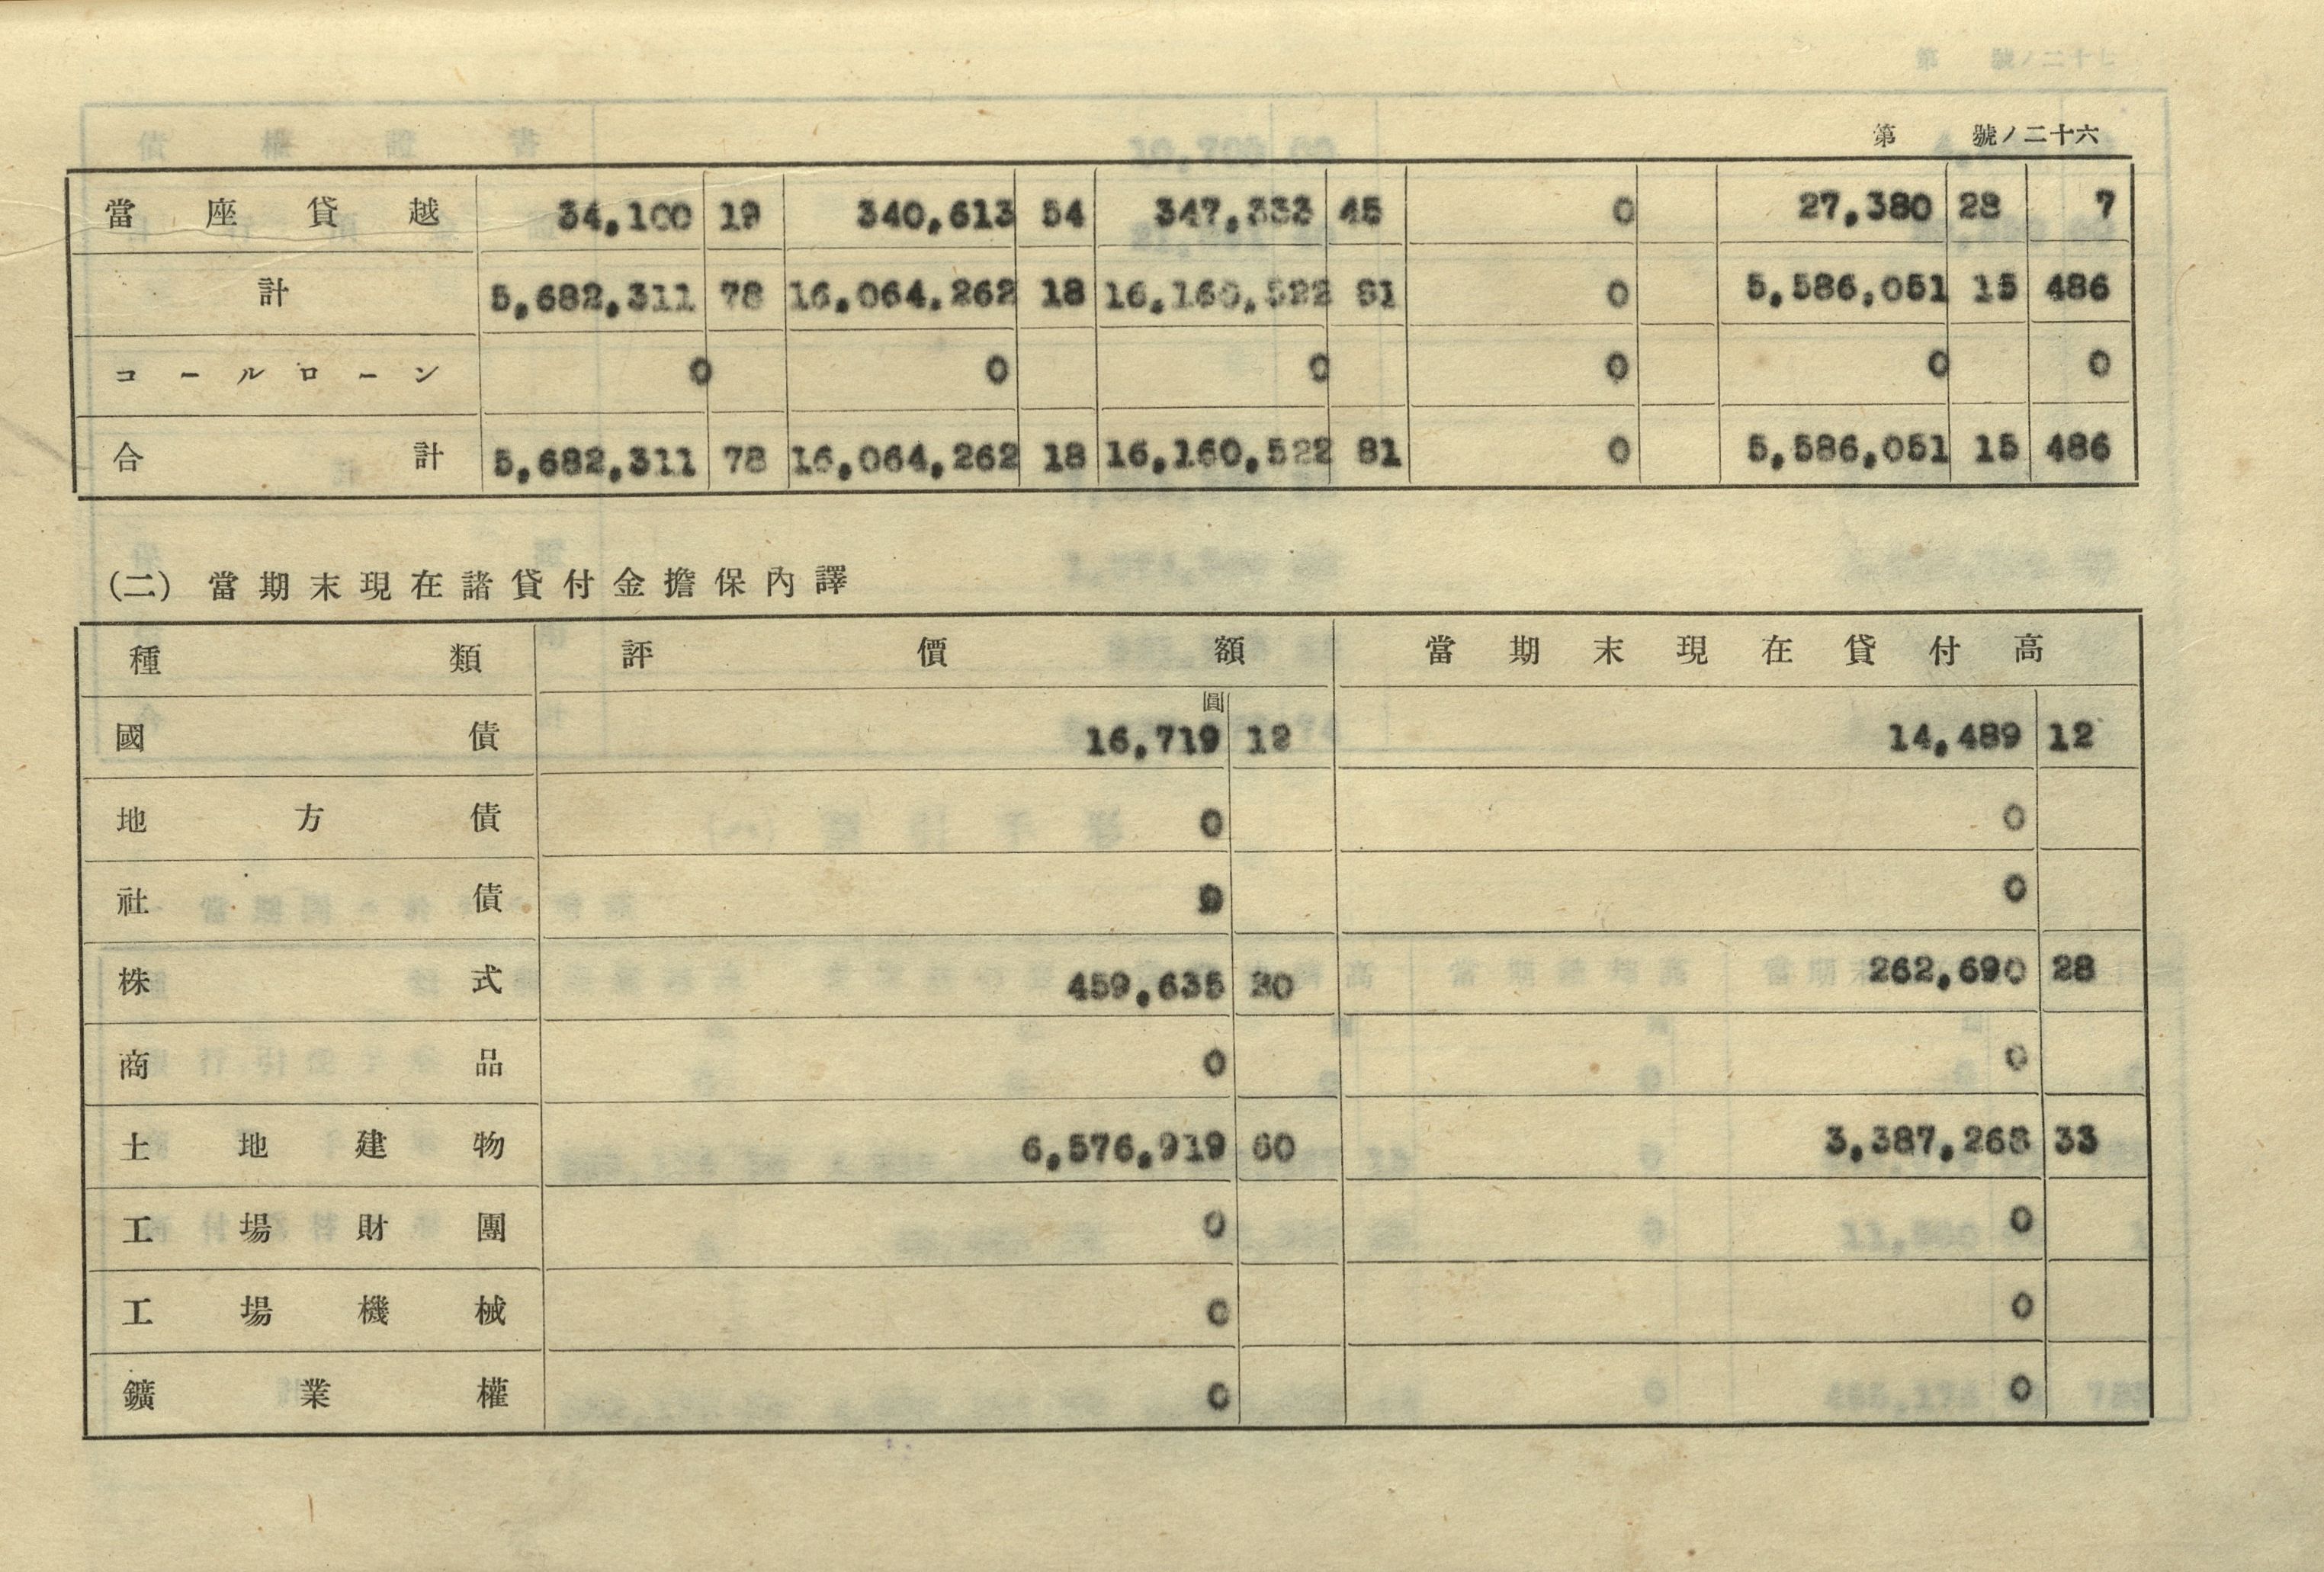 第 號ノ二十六
當座貸越 34,100 19 340,613 54 347,333 45 0 27,380 28 7
計 5,682,311 78 16,064,262 18 16,160,522 81 0 5,586,051 15 486
コールローン 0 0 0 0 0 0
合計 5,682,311 78 16,064,262 18 16,160,522 81 0 5,586,051 15 486
(二) 當期末現在諸貸付金擔保內譯
種類 評價額 當期末現在貸付高
圓
國債 16,719 12 14,489 12
地方債 0 0
社債 0 0
株式 459,635 30 262,690 28
商品 0 0
土地建物 6,576,919 60 3,387,268 33
工場財團 0 0
工場機械 0 0
鑛業權 0 0